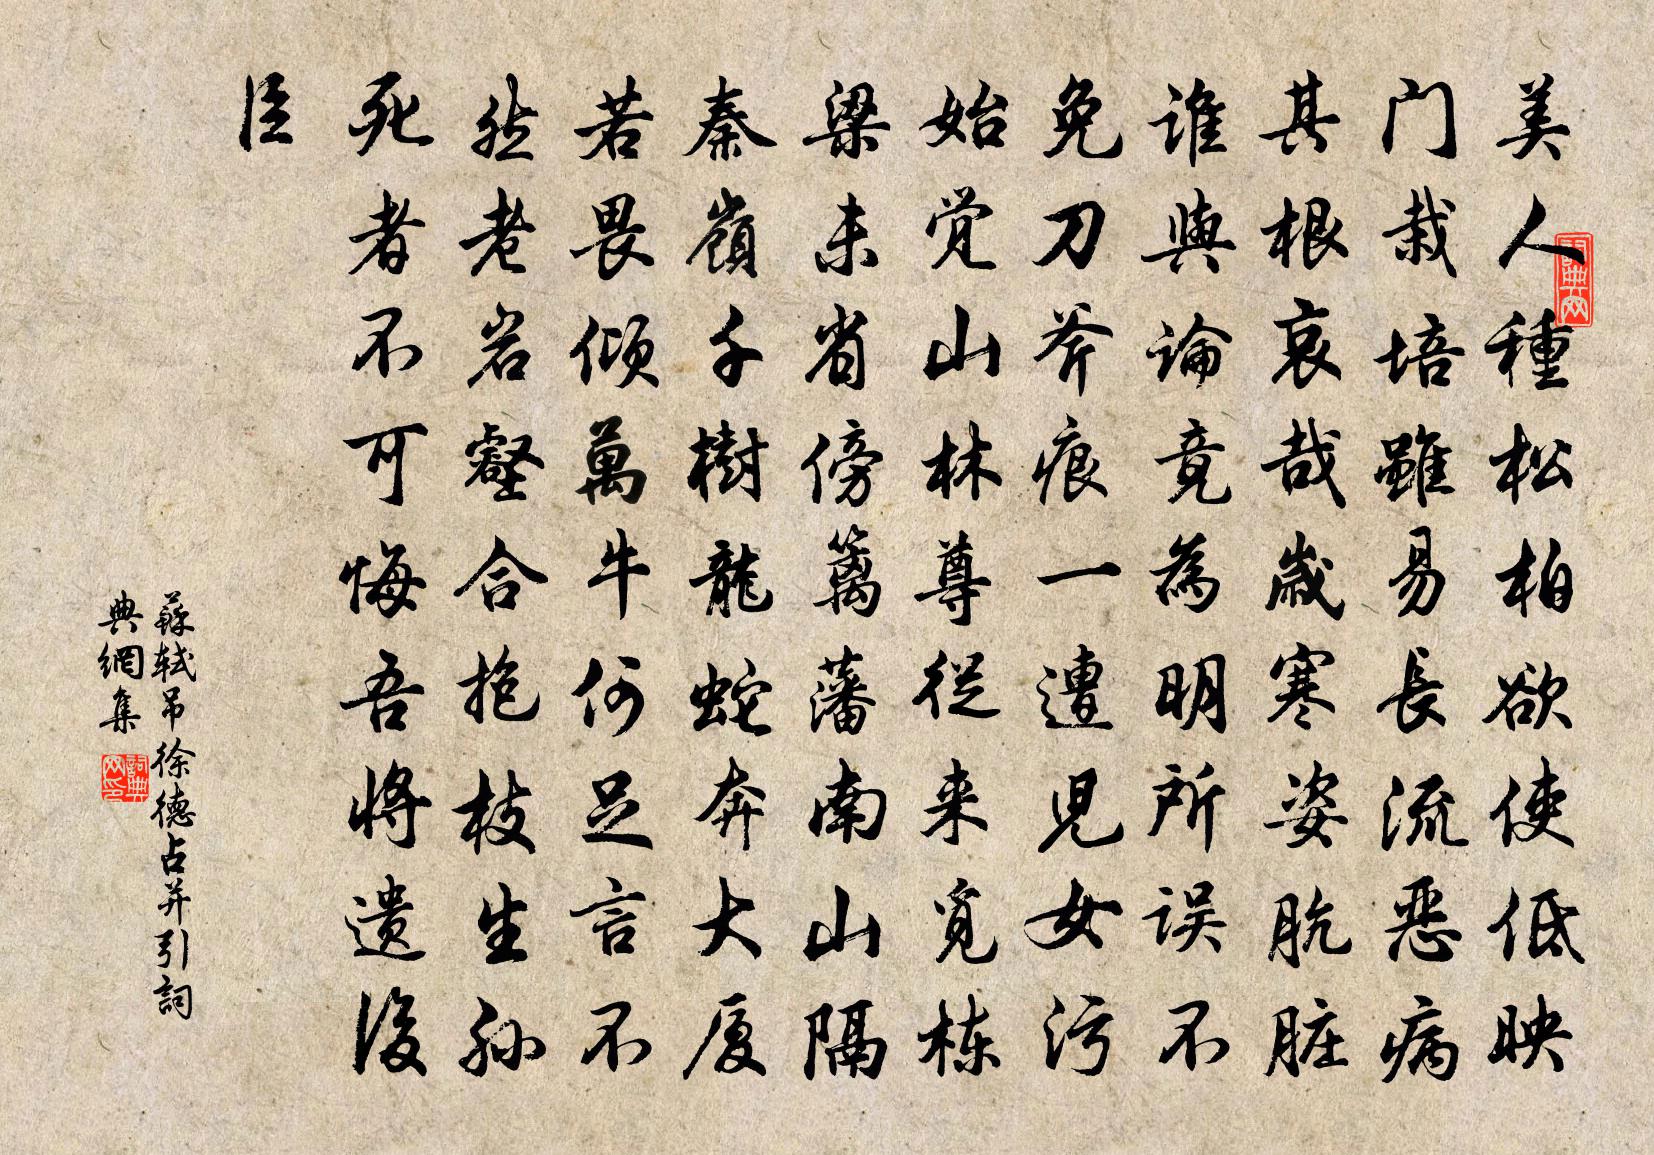 美人種松柏欲使低映
门栽培雖易長流恶病
其根哀哉歲寒姿肮脏
谁與論竟為明所误不
免刀斧痕一遭児女污
始觉山林尊從来覓栋
梁未省傍篱藩南山隔
秦嶺千樹龍蛇奔大厦
若畏傾萬牛何足言不
然老岩壑合抱枝生孙
死者不可悔吾将遗後
臣
蘇軾吊徐德占并引詞
典網集
詞典网
詞典网印